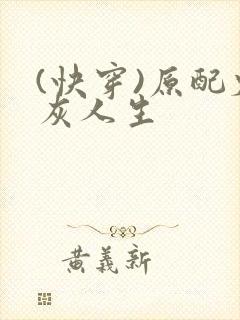 (快穿)原配
灰人生
黄義新